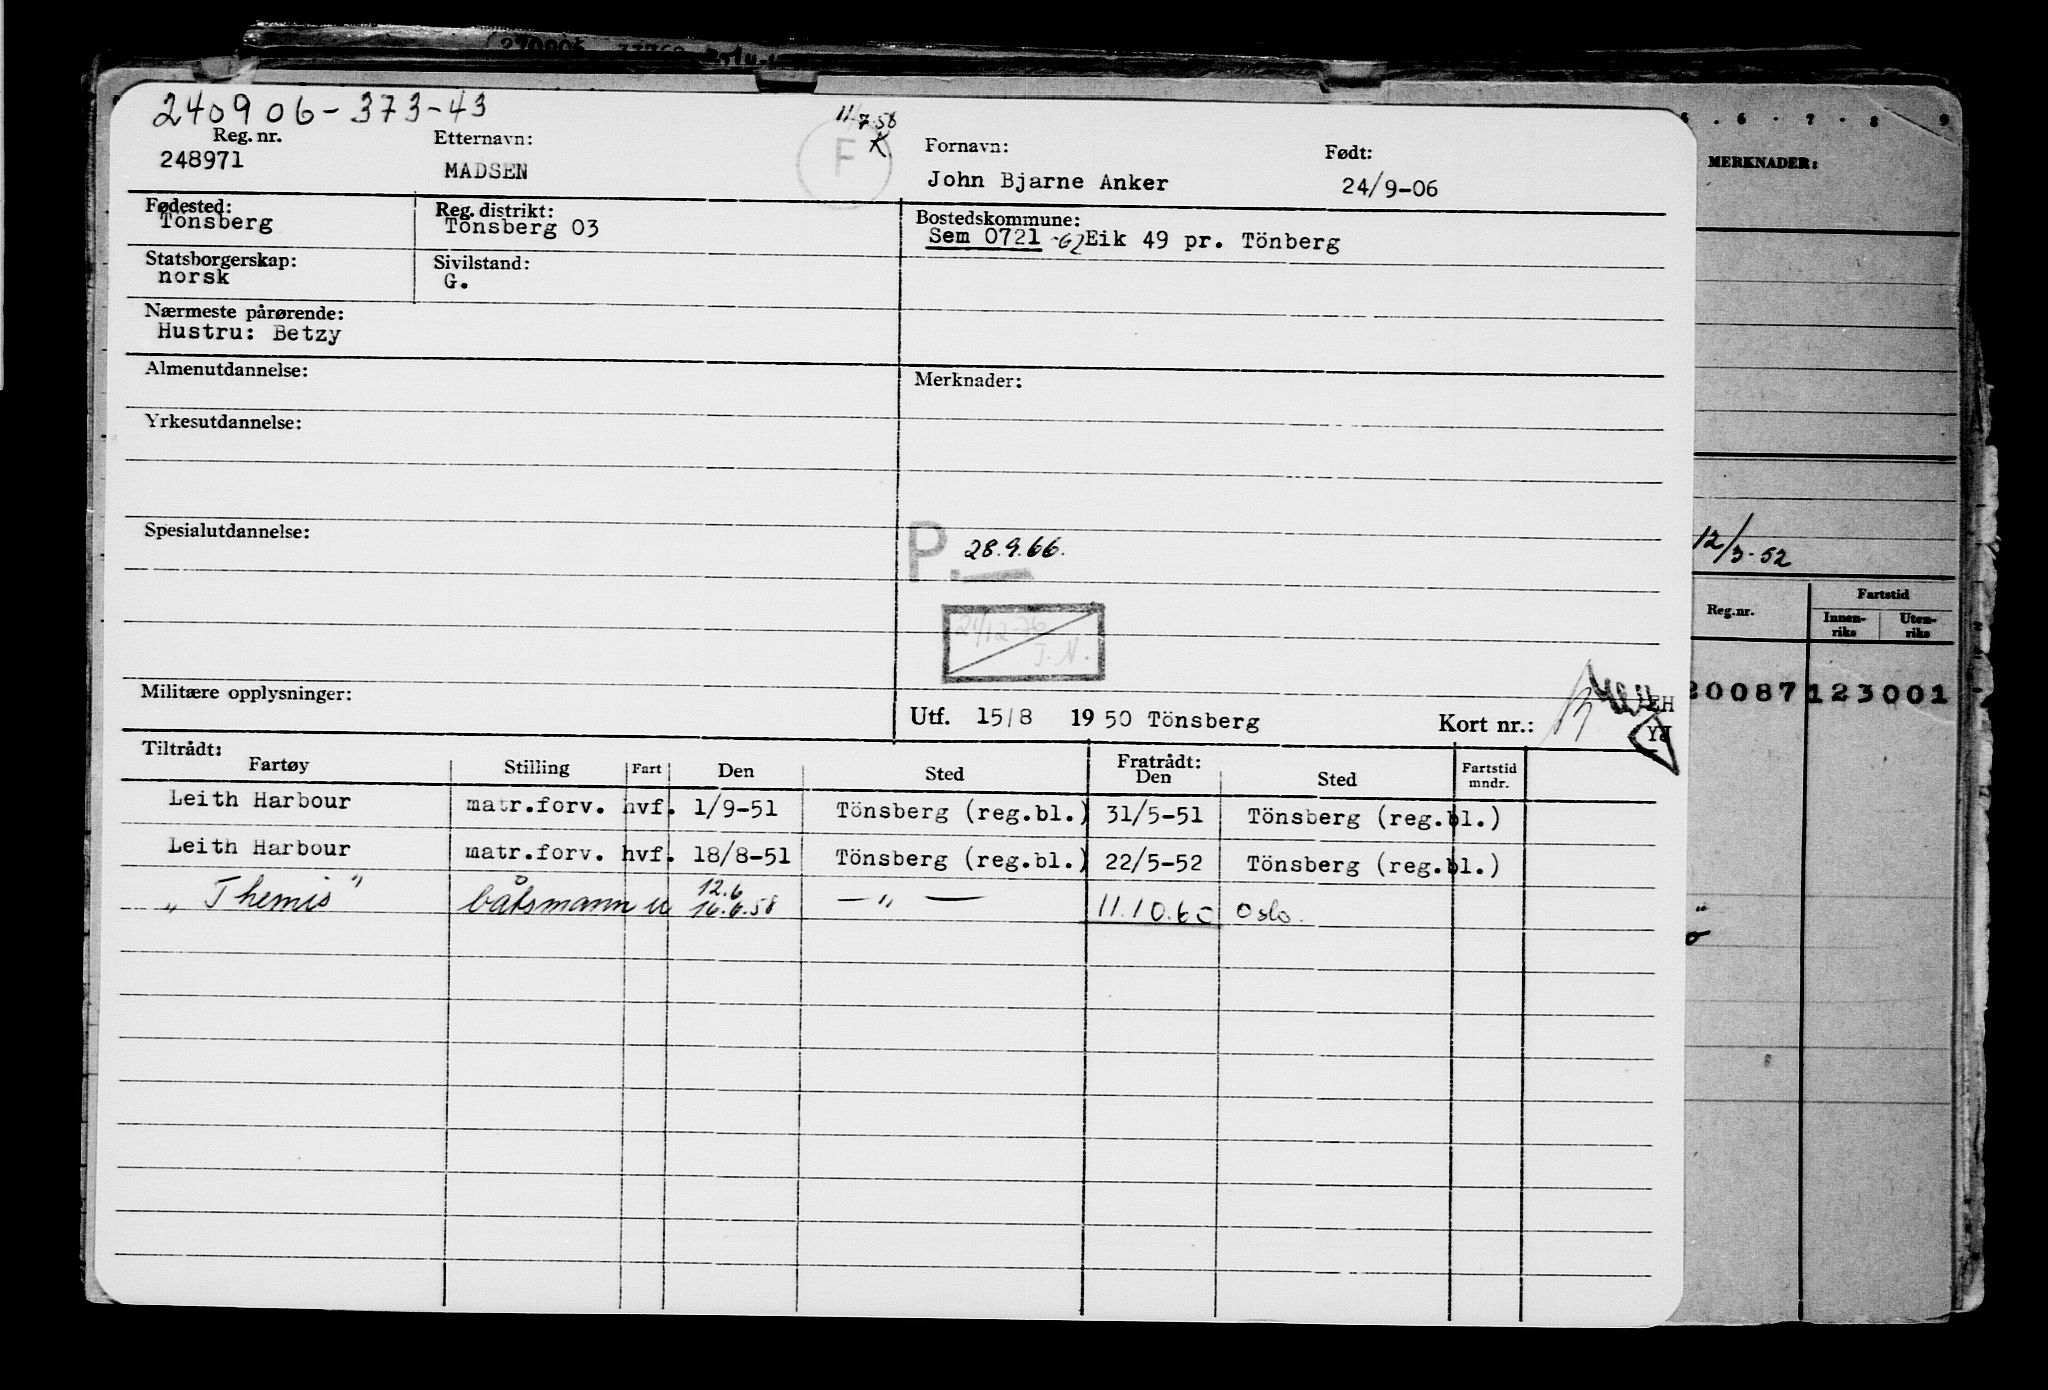 240906-373-43
11/7.58
K
F
Reg. nr. Etternavn: Fornavn: Født:
248971 MADSEN John Bjarne Anker 24/9-06
Fødested: Reg. distrikt: Bostedskommune:
Tönsberg Tönsberg 03 Sem 0721 -62 Eik 49 pr. Tönberg
Statsborgerskap: Sivilstand:
norsk G.
Nærmeste pårørende:
Hustru: Betzy
Almenutdannelse: Merknader:
Yrkesutdannelse:
Spesialutdannelse:
P. 28.9.66.
J.N.
Militære opplysninger:
Utf. 15/8 1950 Tönsberg Kort nr.:
EH
YJ
Tiltrådt: Fratrådt:
Fartøy Stilling Fart Den Sted Den Sted Fartstid mndr.
Leith Harbour matr.forv. hvf. 1/9-51 Tönsberg (reg.bl.) 31/5-51 Tönsberg (reg.bl.)
Leith Harbour matr.forv. hvf. 18/8-51 Tönsberg (reg.bl.) 22/5-52 Tönsberg (reg.bl.)
12.6
"Themis" båtsmann u 16.6.58 —"— 11.10.60 Oslo.
6 . 7 . 8 9
MERKNADER:
12/3-52
Reg.nr. Fartstid
Innen-riks Uten-riks
20087 123001